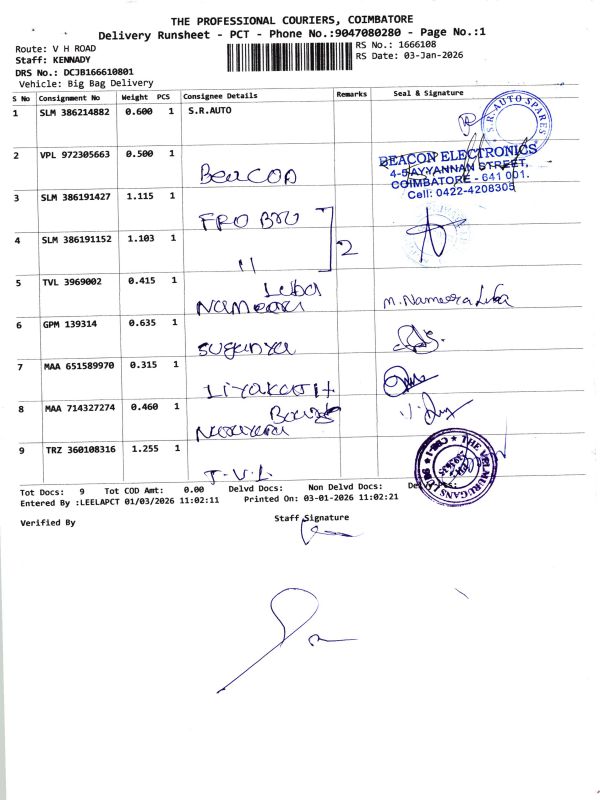 THE PROFESSIONAL COURIERS, COIMBATORE
Delivery Runsheet - PCT - Phone No.:9047080280 - Page No.:1
Route: V H ROAD
RS No.: 1666108
Staff: KENNADY
RS Date: 03-Jan-2026
DRS No.: DCJB166610801
Vehicle: Big Bag Delivery
S No Consignment No Weight PCS Consignee Details Remarks Seal & Signature
1 SLM 386214882 0.600 1 S.R.AUTO
S.R. AUTO SPARES
2 VPL 972305663 0.500 1
BEACON ELECTRONICS
4-5 AYYANNAN STREET,
COIMBATORE - 641 001.
Cell: 0422-4208305
3 SLM 386191427 1.115 1
4 SLM 386191152 1.103 1
11 2
5 TVL 3969002 0.415 1
Nameera Luba M. Nameera Luba
6 GPM 139314 0.635 1
Suganya
7 MAA 651589970 0.315 1
Liyakath
8 MAA 714327274 0.460 1
9 TRZ 360108316 1.255 1
T.V.L
THE VELMURUGANS
Tot Docs: 9 Tot COD Amt: 0.00 Delvd Docs: Non Delvd Docs: Delvd Pcs:
Entered By :LEELAPCT 01/03/2026 11:02:11 Printed On: 03-01-2026 11:02:21
Verified By
Staff Signature